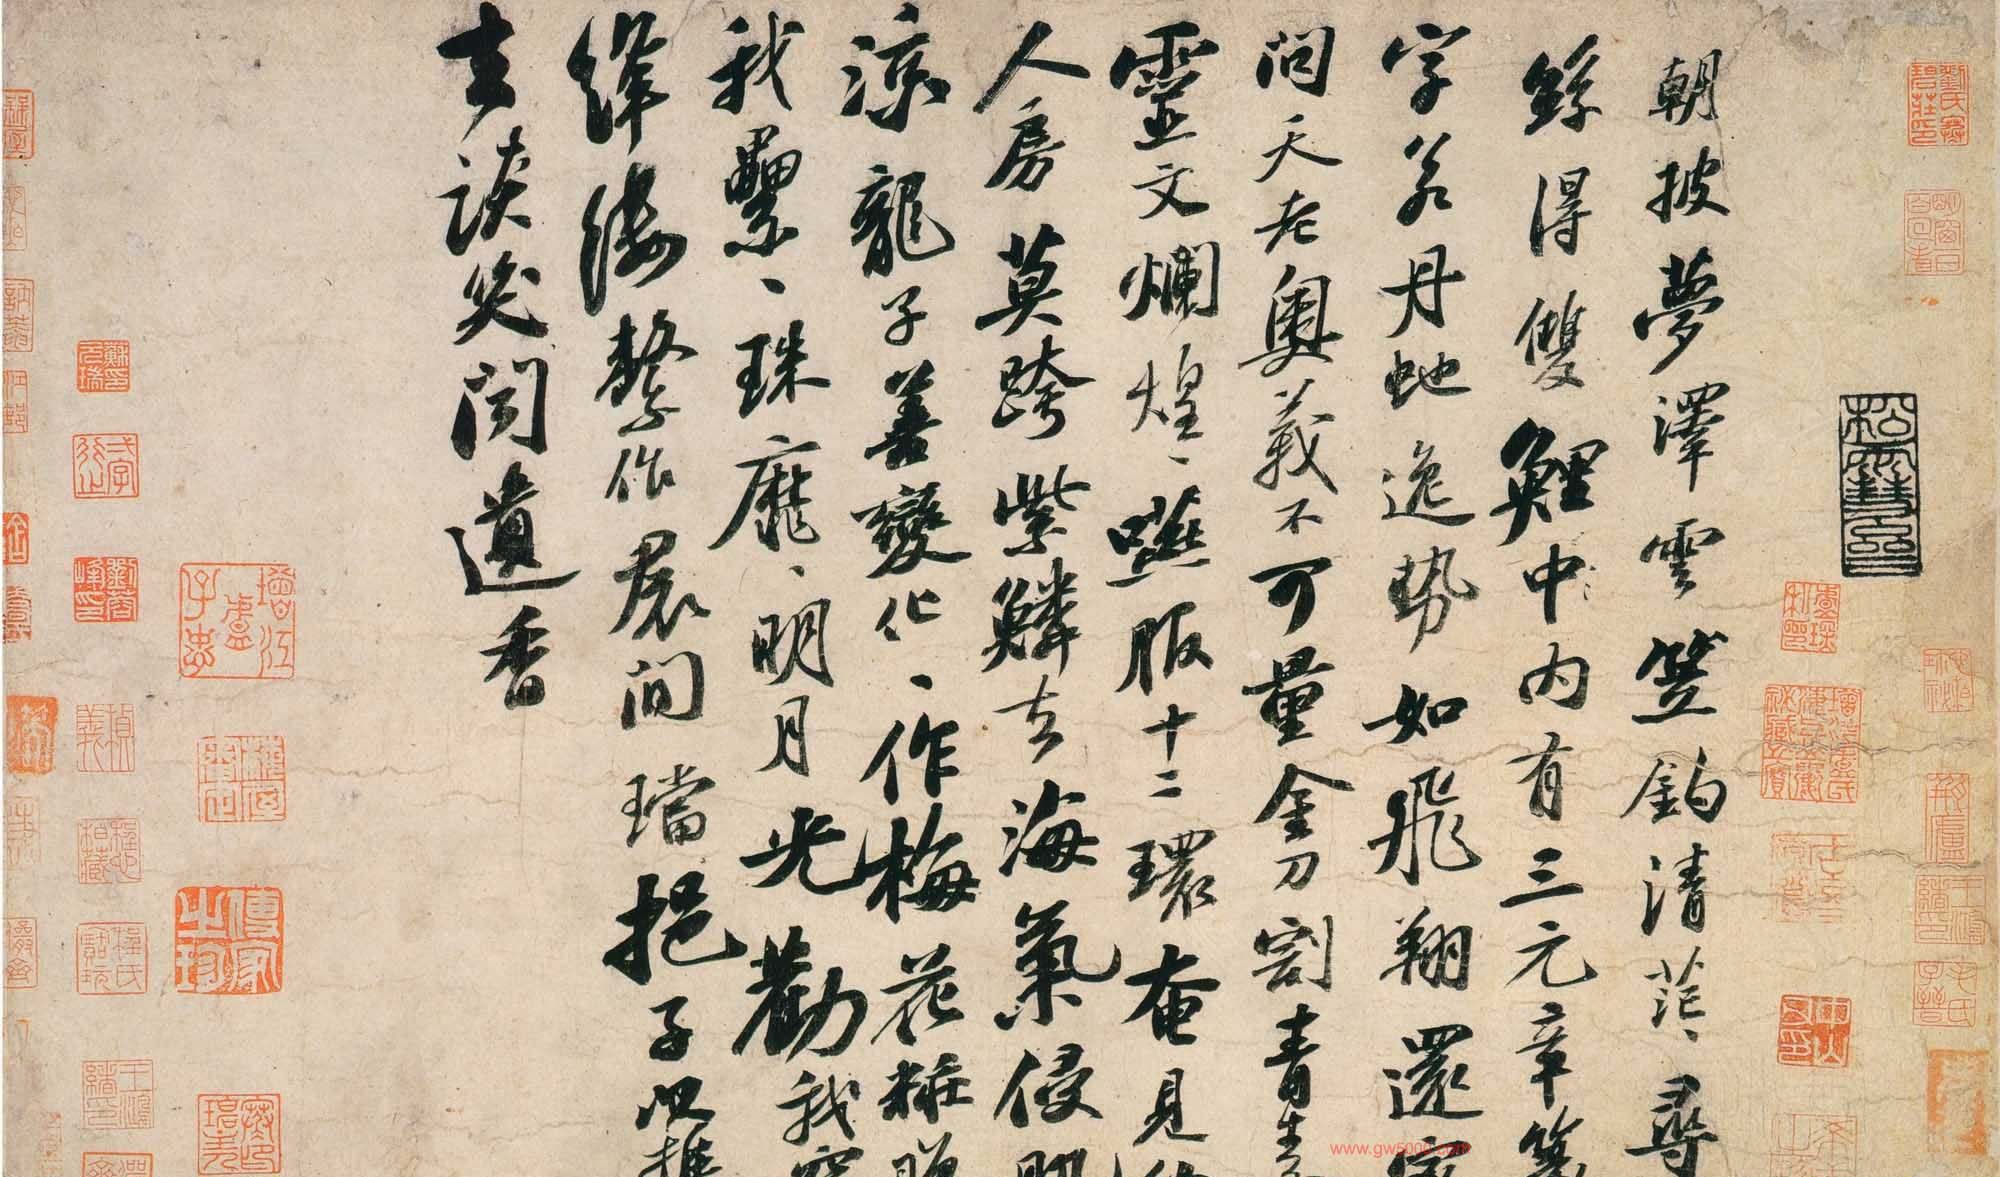 朝披夢澤雲笠釣清茫、尋
絲得雙鯉中內有三元章篆
字若丹蛇逸勢如飛翔還家
問天老奧義不可量金刀割青素
靈文爛煌、嚥服十二環奄見仙
人房莫跨紫鱗去海氣侵肌
涼龍子善變化、作梅花粧贈
我纍、珠靡、明月光勸我穿
絳縷繫作裙間璫挹子以攜
去談笑聞遺香
www.gw5000.com